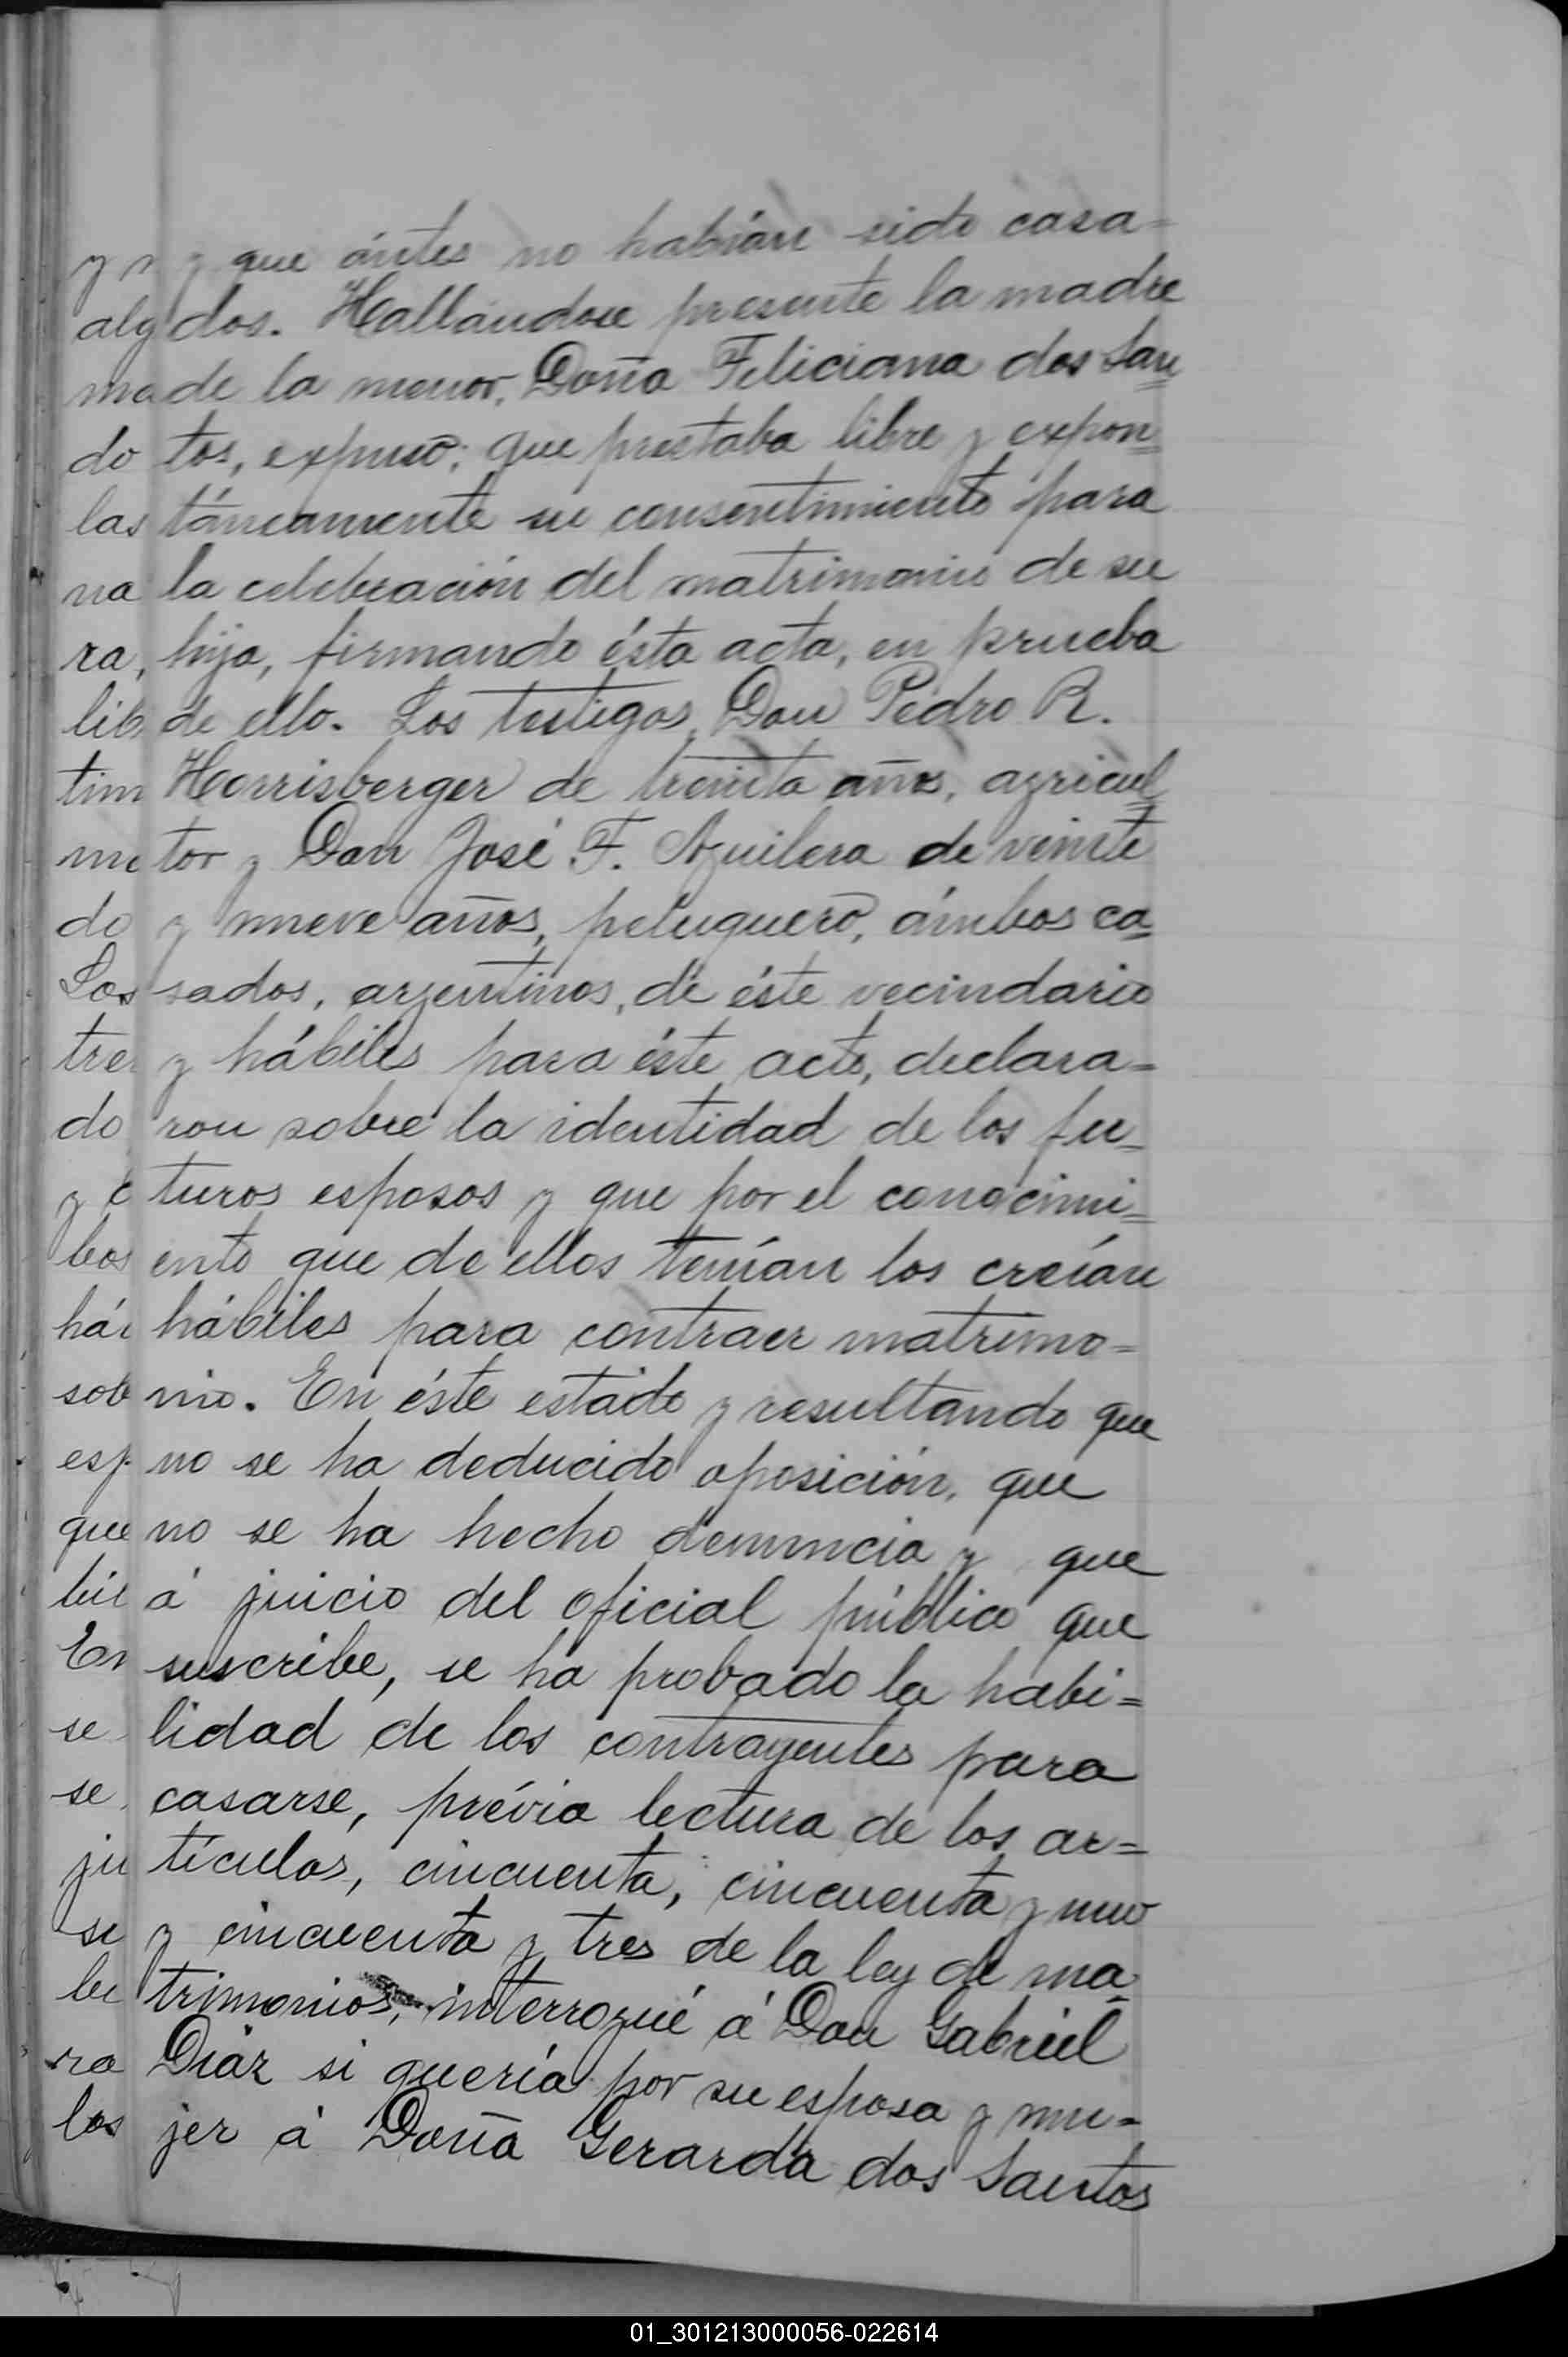 y que ántes no habían sido casa=
dos. Hallándose presente la madre
de la menor, Doña Feliciana dos San=
tos, expuso; que prestaba libre y expon=
táneamente su consentimiento para
la celebración del matrimonio de su
hija, firmando ésta acta, en prueba
de ello. Los testigos, Don Pedro R.
Horrisberger de treinta años, agricul=
tor y Don José F. Aguilera de veinte
y nueve años, peluquero, ámbos ca=
sados, argentinos, de éste vecindario
y hábiles para éste acto, declara=
ron sobre la identidad de los fu=
turos esposos y que por el conocimi=
ento que de ellos tenían los creían
hábiles para contraer matrimo=
nio. En éste estado y resultando que
no se ha deducido oposición, que
no se ha hecho denuncia y que
á juicio del oficial público que
suscribe, se ha probado la habi=
lidad de los contrayentes para
casarse, prévia lectura de los ar=
tículos, cincuenta, cincuenta y uno
y cincuenta y tres de la ley de ma=
trimonios, interrogué á Don Gabriel
Diáz si quería por su esposa y mu=
jer á Doña Gerarda dos Santos
01_301213000056-022614